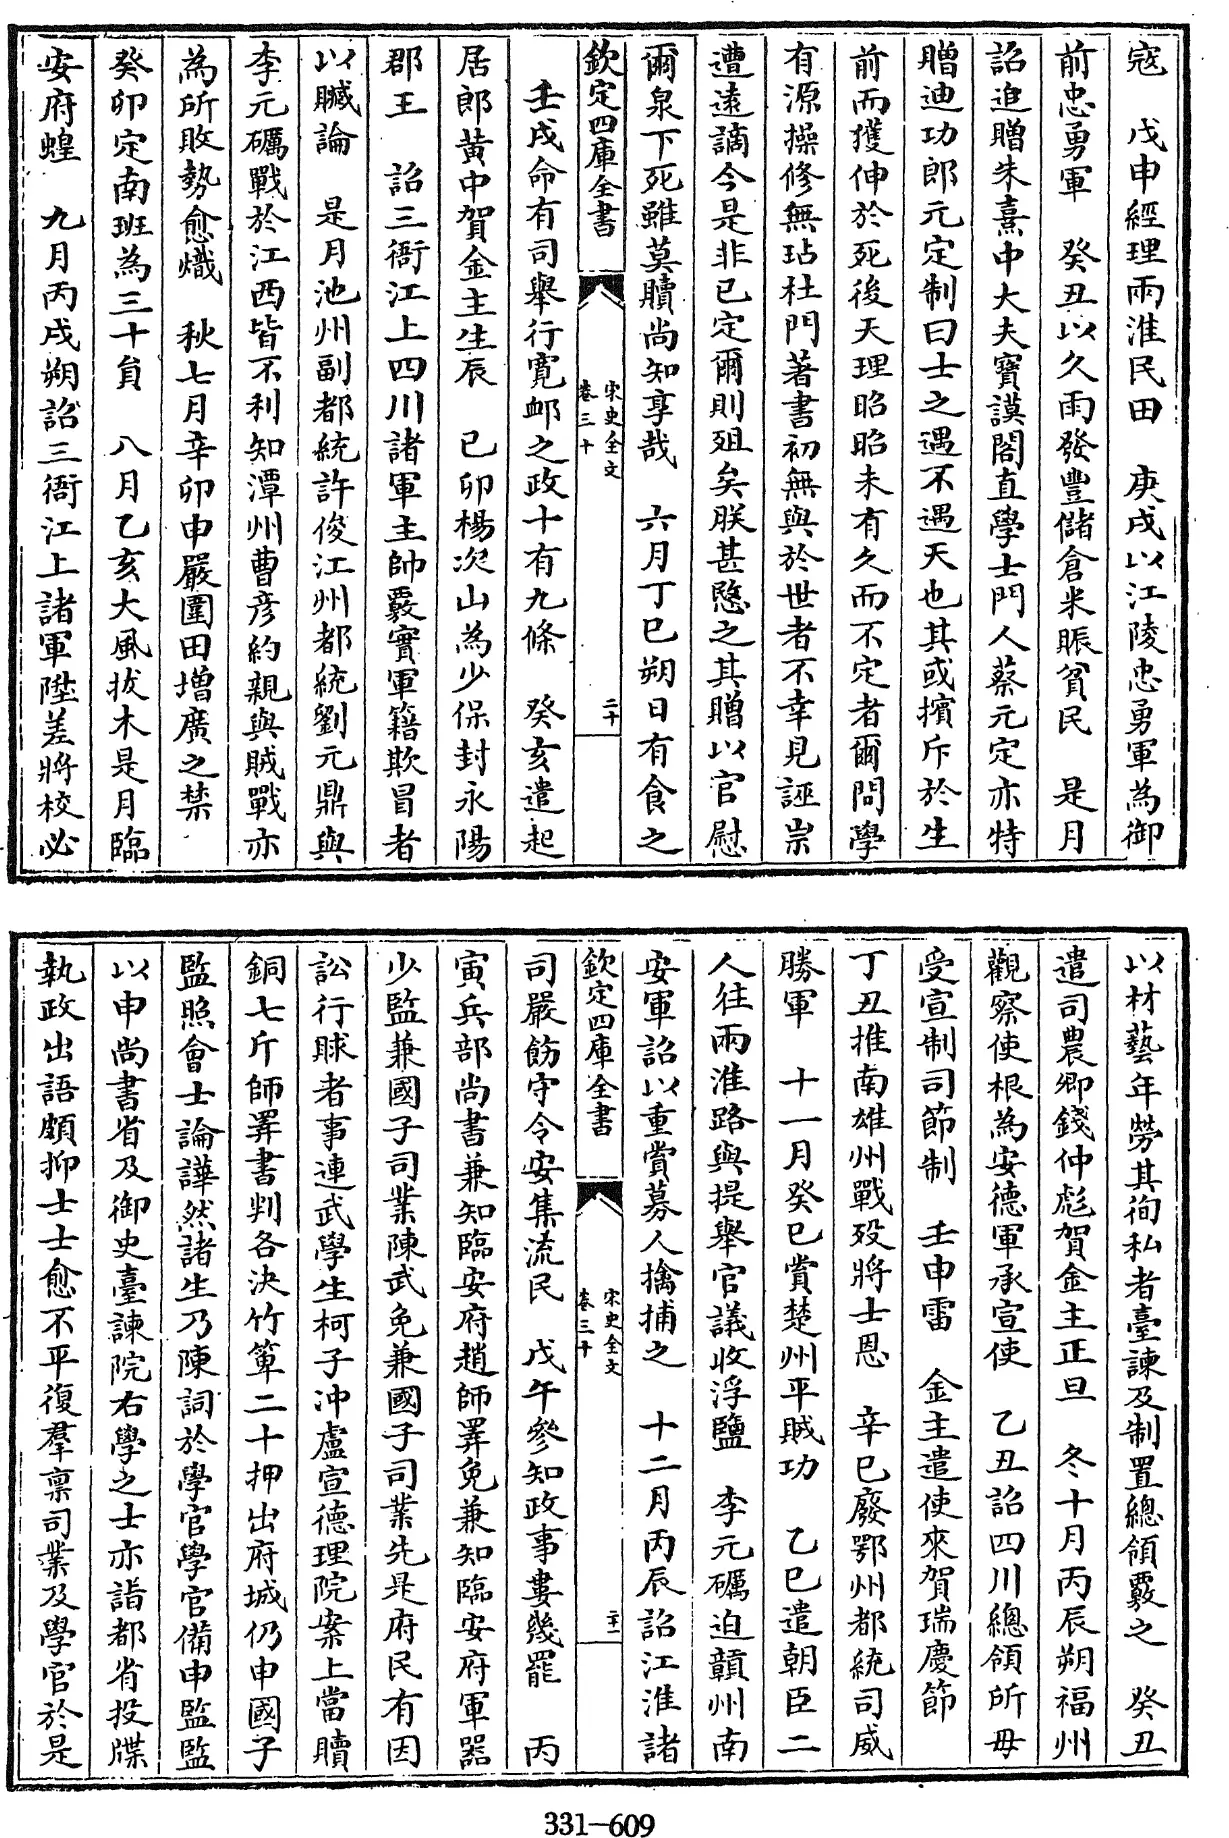 寇　戊申經理兩淮民田　庚戌以江陵忠勇軍為御
前忠勇軍　癸丑以久雨發豐儲倉米賑貧民　是月
詔追贈朱熹中大夫寶謨閣直學士門人蔡元定亦特
贈迪功郎元定制曰士之遇不遇天也其或擯斥於生
前而獲伸於死後天理昭昭未有久而不定者爾問學
有源操修無玷杜門著書初無與於世者不幸見誣祟
遭遠謫今是非已定爾則殂矣朕甚愍之其贈以官慰
爾泉下死雖莫贖尚知享哉　六月丁巳朔日有食之
欽定四庫全書　宋史全文　卷三十　二十
壬戌命有司舉行寬邮之政十有九條　癸亥遣起
居郎黄中賀金主生辰　已卯楊次山為少保封永陽
郡王　詔三衙江上四川諸軍主帥覈實軍籍欺冒者
以贓論　是月池州副都統許俊江州都統劉元鼎與
李元礪戰於江西皆不利知潭州曹彥約親與賊戰亦
為所敗勢愈熾　秋七月辛卯申嚴圍田增廣之禁
癸卯定南班為三十員　八月乙亥大風拔木是月臨
安府蝗　九月丙戌朔詔三衙江上諸軍陞差將校必
以材藝年勞其徇私者臺諫及制置總領覈之　癸丑
遣司農卿錢仲彪賀金主正旦　冬十月丙辰朔福州
觀察使根為安德軍承宣使　乙丑詔四川總領所毋
受宣制司節制　壬申雷　金主遣使來賀瑞慶節
丁丑推南雄州戰殁將士恩　辛巳廢鄂州都統司威
勝軍　十一月癸巳賞楚州平賊功　乙巳遣朝臣二
人往兩淮路與提舉官議收浮鹽　李元礪迫贛州南
安軍詔以重賞募人擒捕之　十二月丙辰詔江淮諸
欽定四庫全書　宋史全文　卷三十　二十一
司嚴飭守令安集流民　戊午參知政事婁幾罷　丙
寅兵部尚書兼知臨安府趙師𢍰免兼知臨安府軍器
少監兼國子司業陳武免兼國子司業先是府民有因
訟行賕者事連武學生柯子冲盧宣德理院案上當贖
銅七斤師𢍰書判各決竹箄二十押出府城仍申國子
監照會士論譁然諸生乃陳詞於學官學官備申監監
以申尚書省及御史臺諫院右學之士亦詣都省投牒
執政出語頗抑士士愈不平復羣稟司業及學官於是
331-609